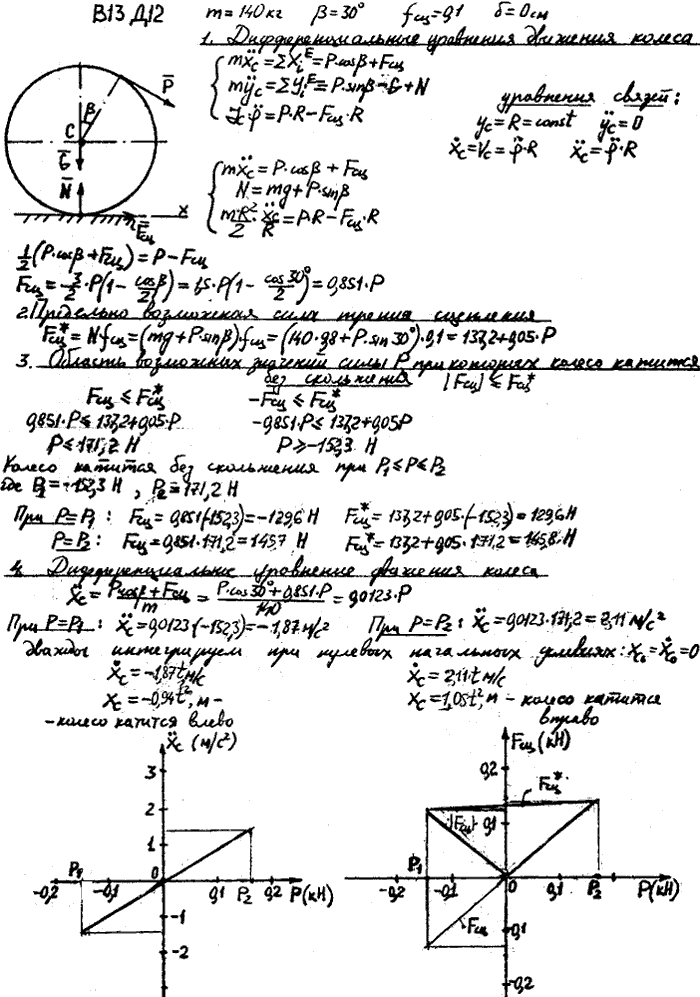 В13 Д12 m=140 кг β=30° fсц=0,1 δ=0 см
1. Дифференциальные уравнения движения колеса
mẍc=ΣXᵢᴱ=P·cosβ+Fсц
mÿc=ΣYᵢᴱ=-P·sinβ-G+N
Jc φ̈=P·R-Fсц·R
уравнения связей:
yc=R=const ÿc=0
ẋc=Vc=φ̇·R ẍc=φ̈·R
P̄
β
C
Ḡ
N̄
x
F̄сц
mẍc=P·cosβ+Fсц
N=mg+P·sinβ
mR²/2·ẍc/R=P·R-Fсц·R
1/2(P·cosβ+Fсц)=P-Fсц
Fсц=2/3·P(1-cosβ/2)=1,5·P(1-cos30°/2)=0,851·P
2. Предельно возможная сила трения сцепления
Fсц*=N·fсц=(mg+P·sinβ)·fсц=(140·9,8+P·sin30°)·0,1=137,2+0,05·P
3. Область возможных значений силы P при которых колесо катится
без скольжения |Fсц|≤Fсц*
Fсц≤Fсц* -Fсц≤Fсц*
0,851·P≤137,2+0,05·P -0,851·P≤137,2+0,05P
P≤171,2 Н P≥-152,3 Н
Колесо катится без скольжения при P₁≤P≤P₂
где P₁=-152,3 Н, P₂=171,2 Н
При P=P₁: Fсц=0,851(-152,3)=-129,6 Н Fсц*=137,2+0,05·(-152,3)=129,6 Н
P=P₂: Fсц=0,851·171,2=145,7 Н Fсц*=137,2+0,05·171,2=145,8 Н
4. Дифференциальное уравнение движения колеса
ẍc=(P·cosβ+Fсц)/m=(P·cos30°+0,851·P)/140=0,0123·P
При P=P₁: ẍc=0,0123·(-152,3)=-1,87 м/с² При P=P₂: ẍc=0,0123·171,2=2,11 м/с²
дважды интегрируем при нулевых начальных условиях: x₀=ẋ₀=0
ẋc=-1,87t, м/с ẋc=2,11·t м/с
xc=-0,94t², м- xc=1,05t², м - колесо катится
-колесо катится влево вправо
ẍc (м/с²) Fсц(кН)
3
2
1
0
-1
-2
-0,2 P₁ -0,1 0,1 P₂ 0,2 P(кН)
0,2
Fсц*
|Fсц| 0,1
P₁ -0,2 -0,1 0 0,1 P₂ P(кН)
Fсц
-0,1
-0,2